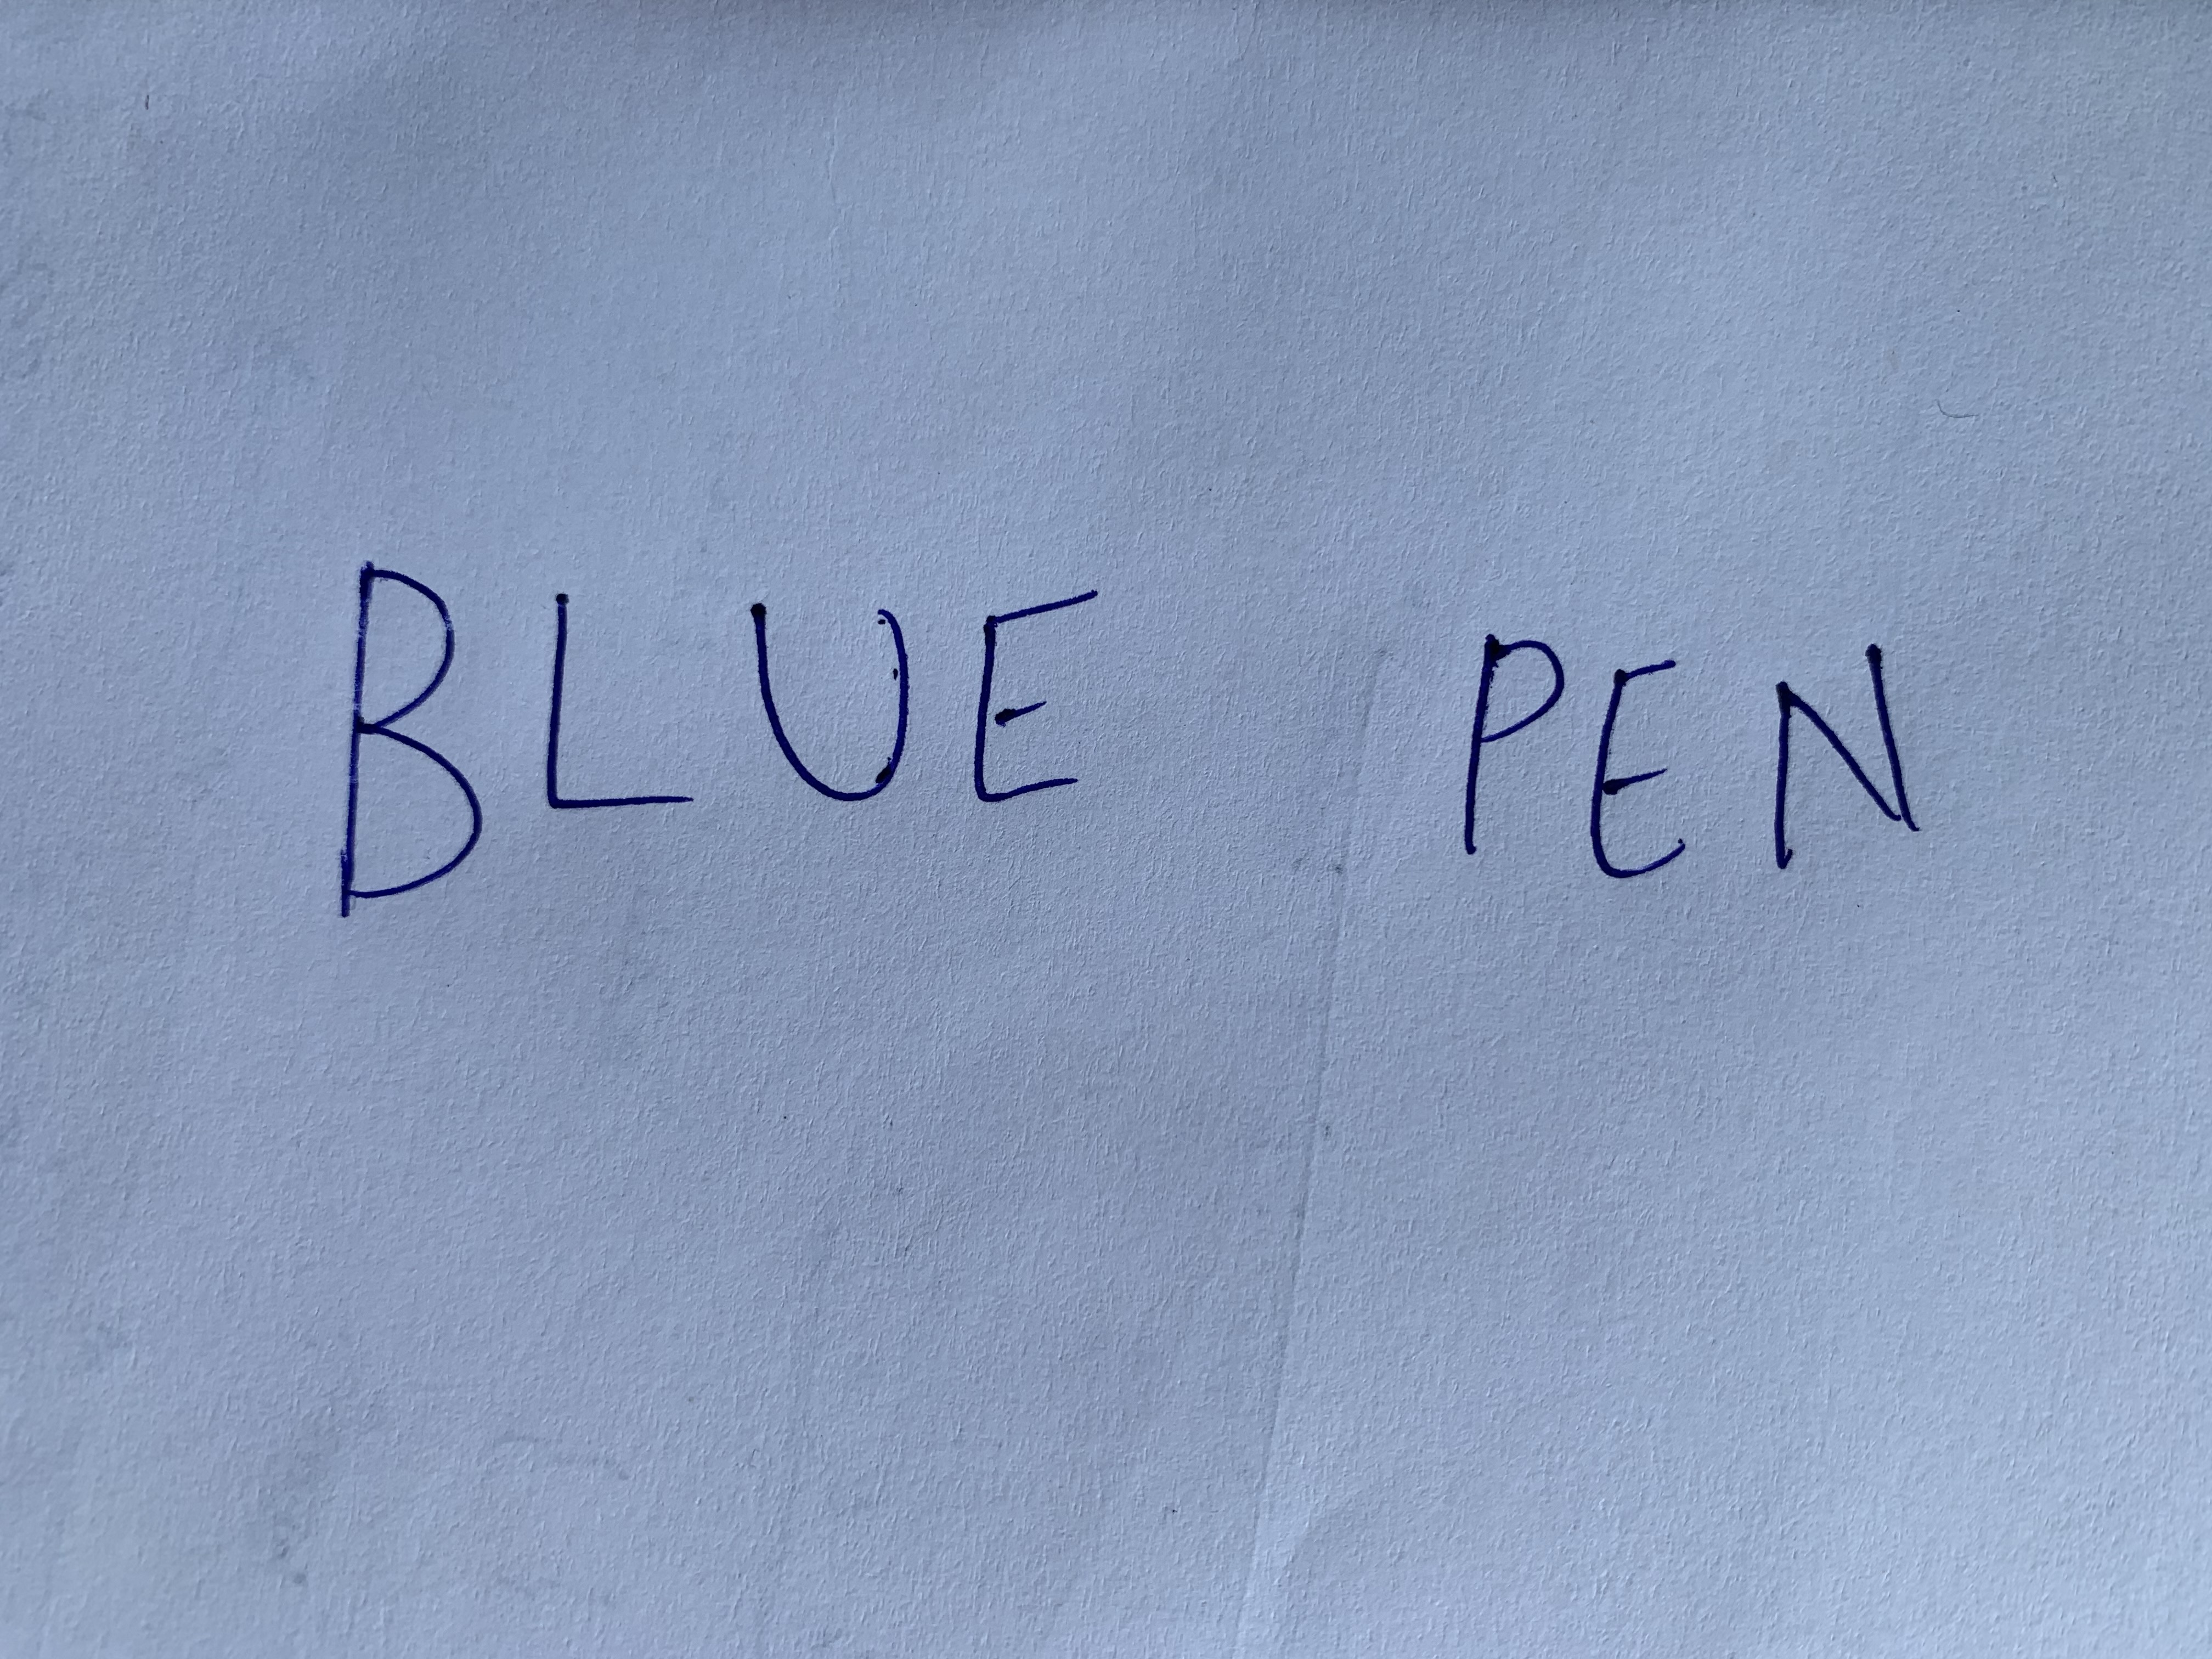 BLUE PEN